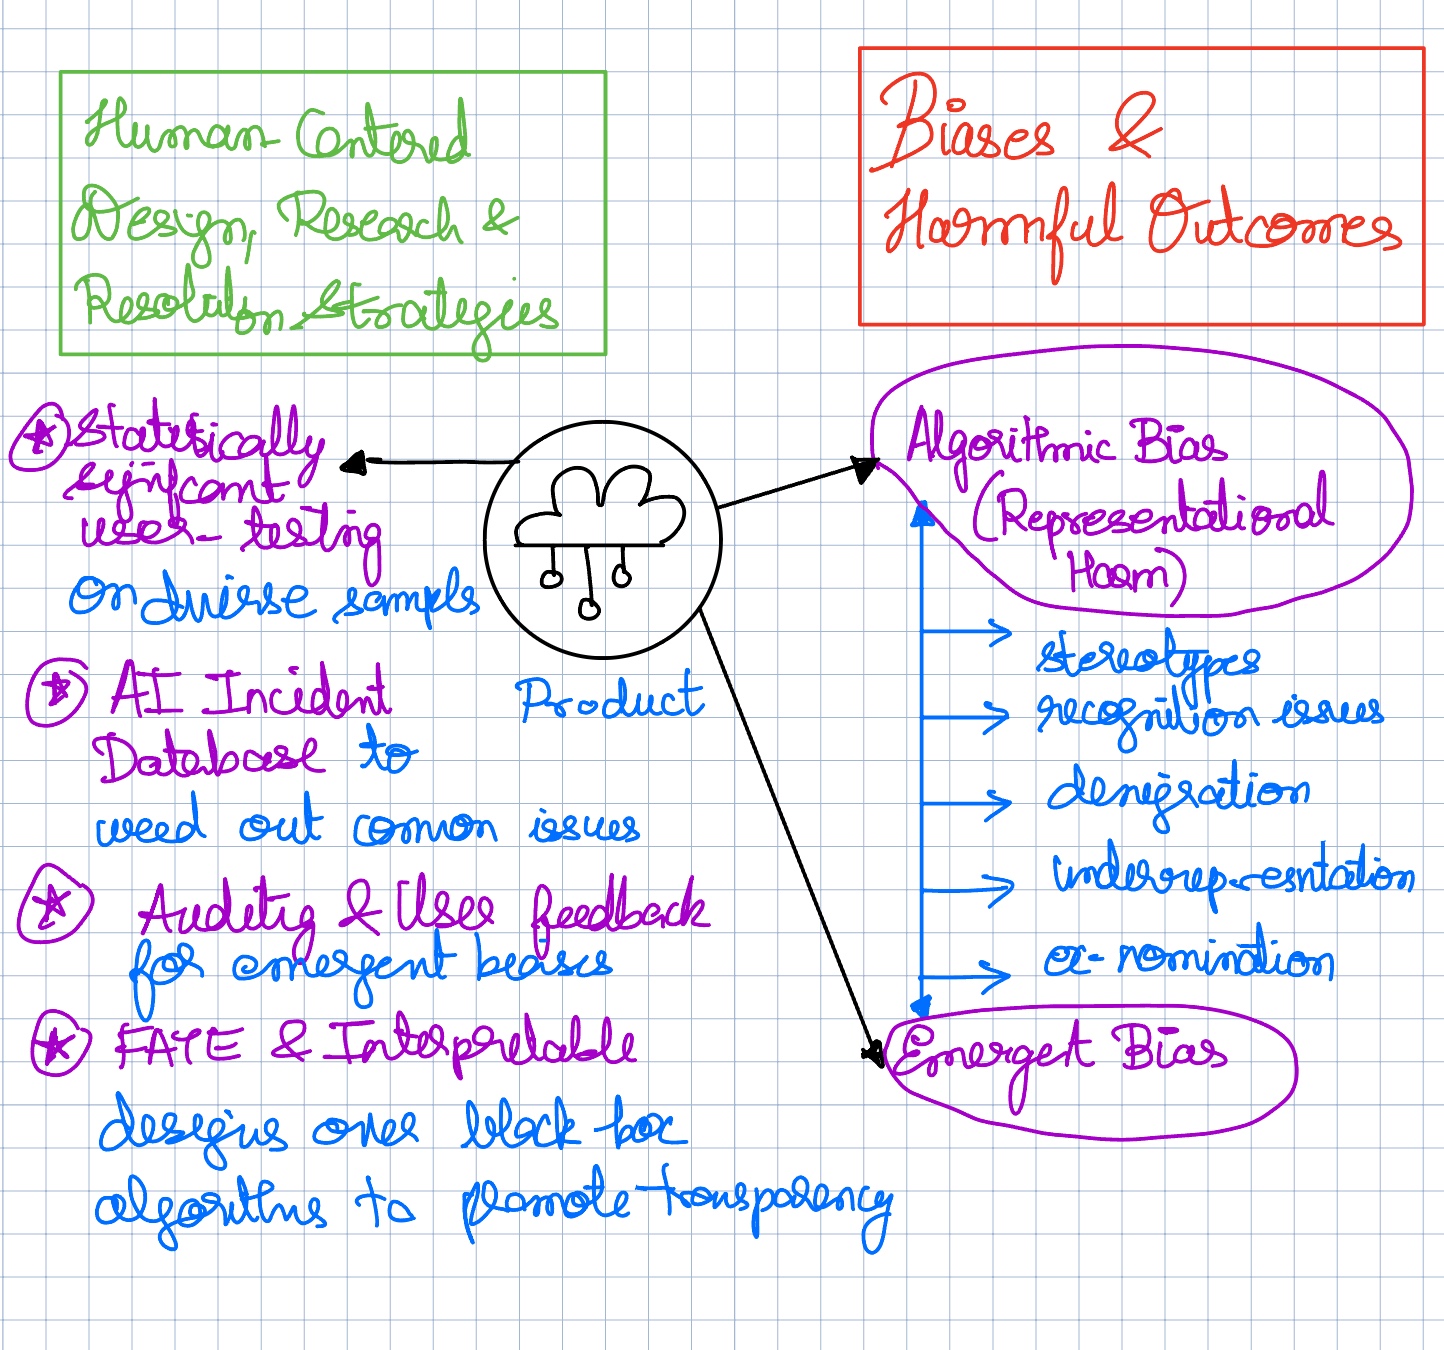 Human-Centered
Design, Research &
Resolution Strategies
Biases &
Harmful Outcomes
Statistically
significant
user-testing
on diverse samples
AI Incident
Database to
weed out common issues
Auditing & User feedback
for emergent biases
FATE & Interpretable
designs over black-box
algorithms to promote transparency
Product
Algorithmic Bias
(Representational
Harm)
stereotypes
recognition issues
denigration
underrepresentation
ex-nomination
Emergent Bias